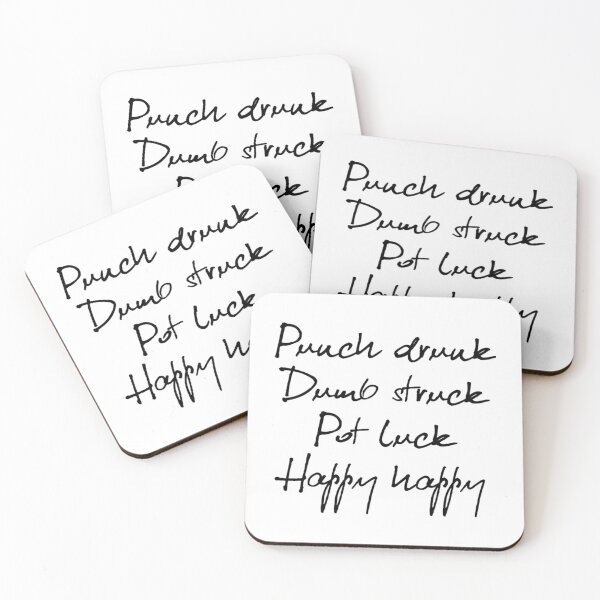 Punch drunk
Dumb struck
Punch drunk
Dumb struck
Pot luck
Punch drunk
Dumb struck
Pot luck
Happy
Punch drunk
Dumb struck
Pot luck
Happy happy